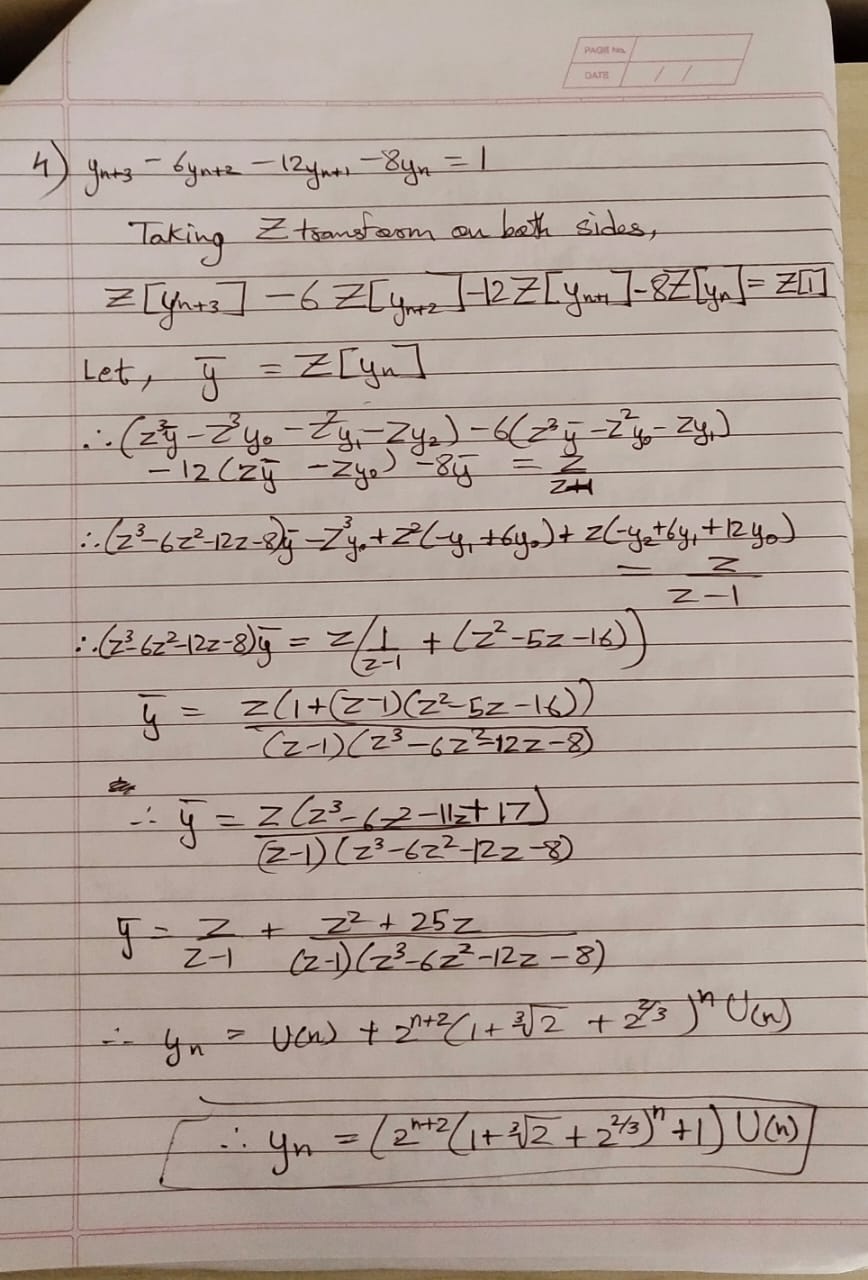 PAGE No.
DATE / /
4) yₙ₊₃ - 6yₙ₊₂ - 12yₙ₊₁ - 8yₙ = 1
Taking Z transform on both sides,
Z[yₙ₊₃] - 6 Z[yₙ₊₂] - 12 Z[yₙ₊₁] - 8Z[yₙ] = Z[1]
Let, ȳ = Z[yₙ]
∴ (z³ȳ - z³y₀ - z²y₁ - zy₂) - 6(z³ȳ - z²y₀ - zy₁)
- 12 (zȳ - zy₀) - 8ȳ = z/(z-1)
∴ (z³ - 6z² - 12z - 8)ȳ - z³y₀ + z²(-y₁ + 6y₀) + z(-y₂ + 6y₁ + 12y₀)
= z/(z-1)
∴ (z³ - 6z² - 12z - 8)ȳ = z(1/(z-1) + (z² - 5z - 16))
ȳ = z(1 + (z-1)(z² - 5z - 16)) / (z-1)(z³ - 6z² - 12z - 8)
∴ ȳ = z(z³ - 6z - 11z + 17) / (z-1)(z³ - 6z² - 12z - 8)
ȳ = z/(z-1) + (z² + 25z) / (z-1)(z³ - 6z² - 12z - 8)
∴ yₙ = U(n) + 2ⁿ⁺²(1 + ∛2 + 2^(2/3))ⁿ U(n)
∴ yₙ = (2ⁿ⁺²(1 + ∛2 + 2^(2/3))ⁿ + 1) U(n)